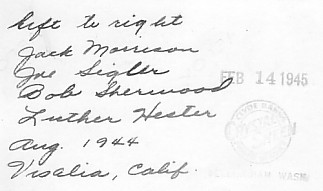 left to right
Jack Morrison
Joe Sigler
Bob Sherwood
Luther Hester
Aug. 1944
Visalia, Calif.
FEB 14 1945
WASH